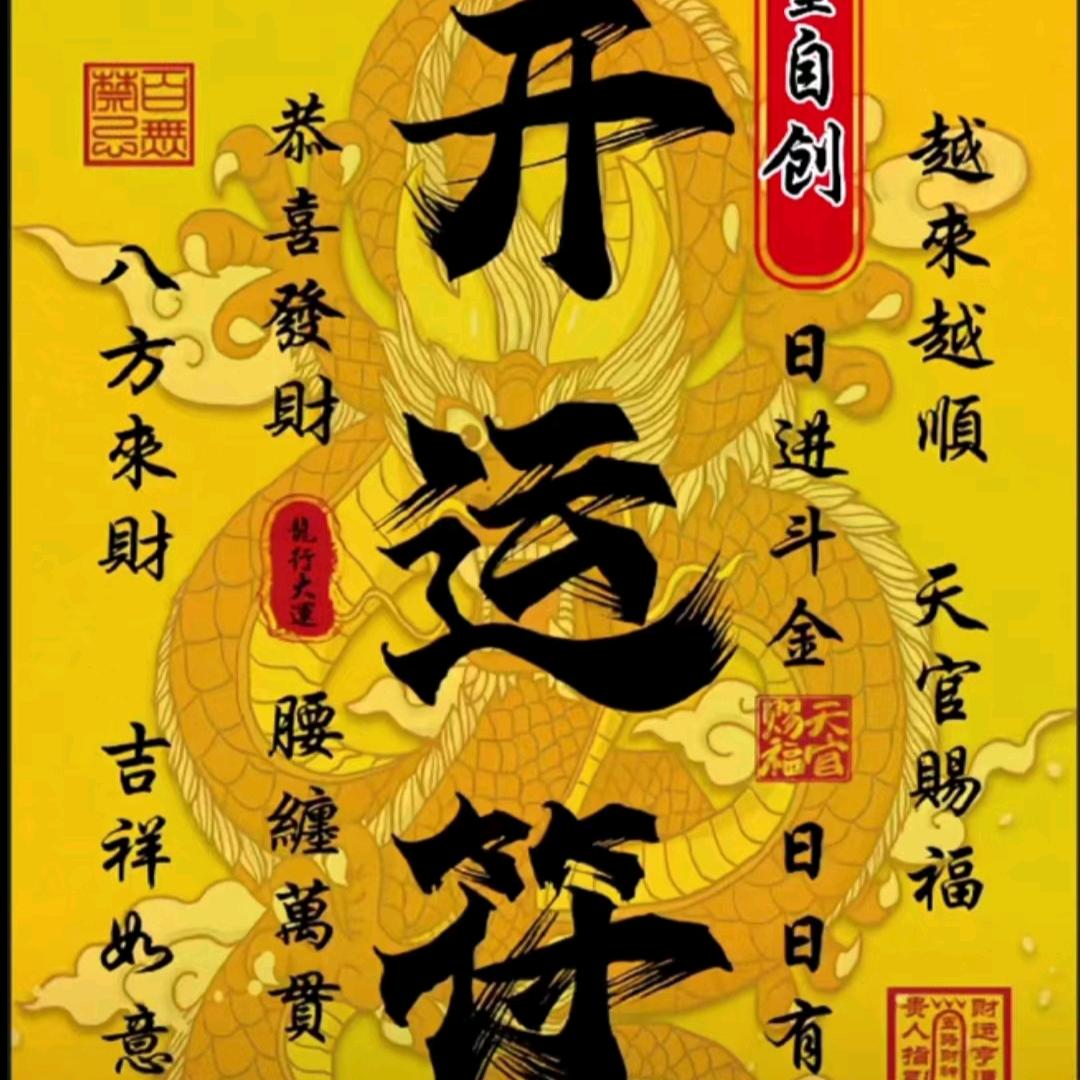 越來越順 天官賜福
自创
日进斗金
天官
赐福
日日有
开运符
恭喜發財
龍行大運
腰纏萬貫
百無
禁忌
八方來財 吉祥如意
財运亨通
五路財神
贵人指